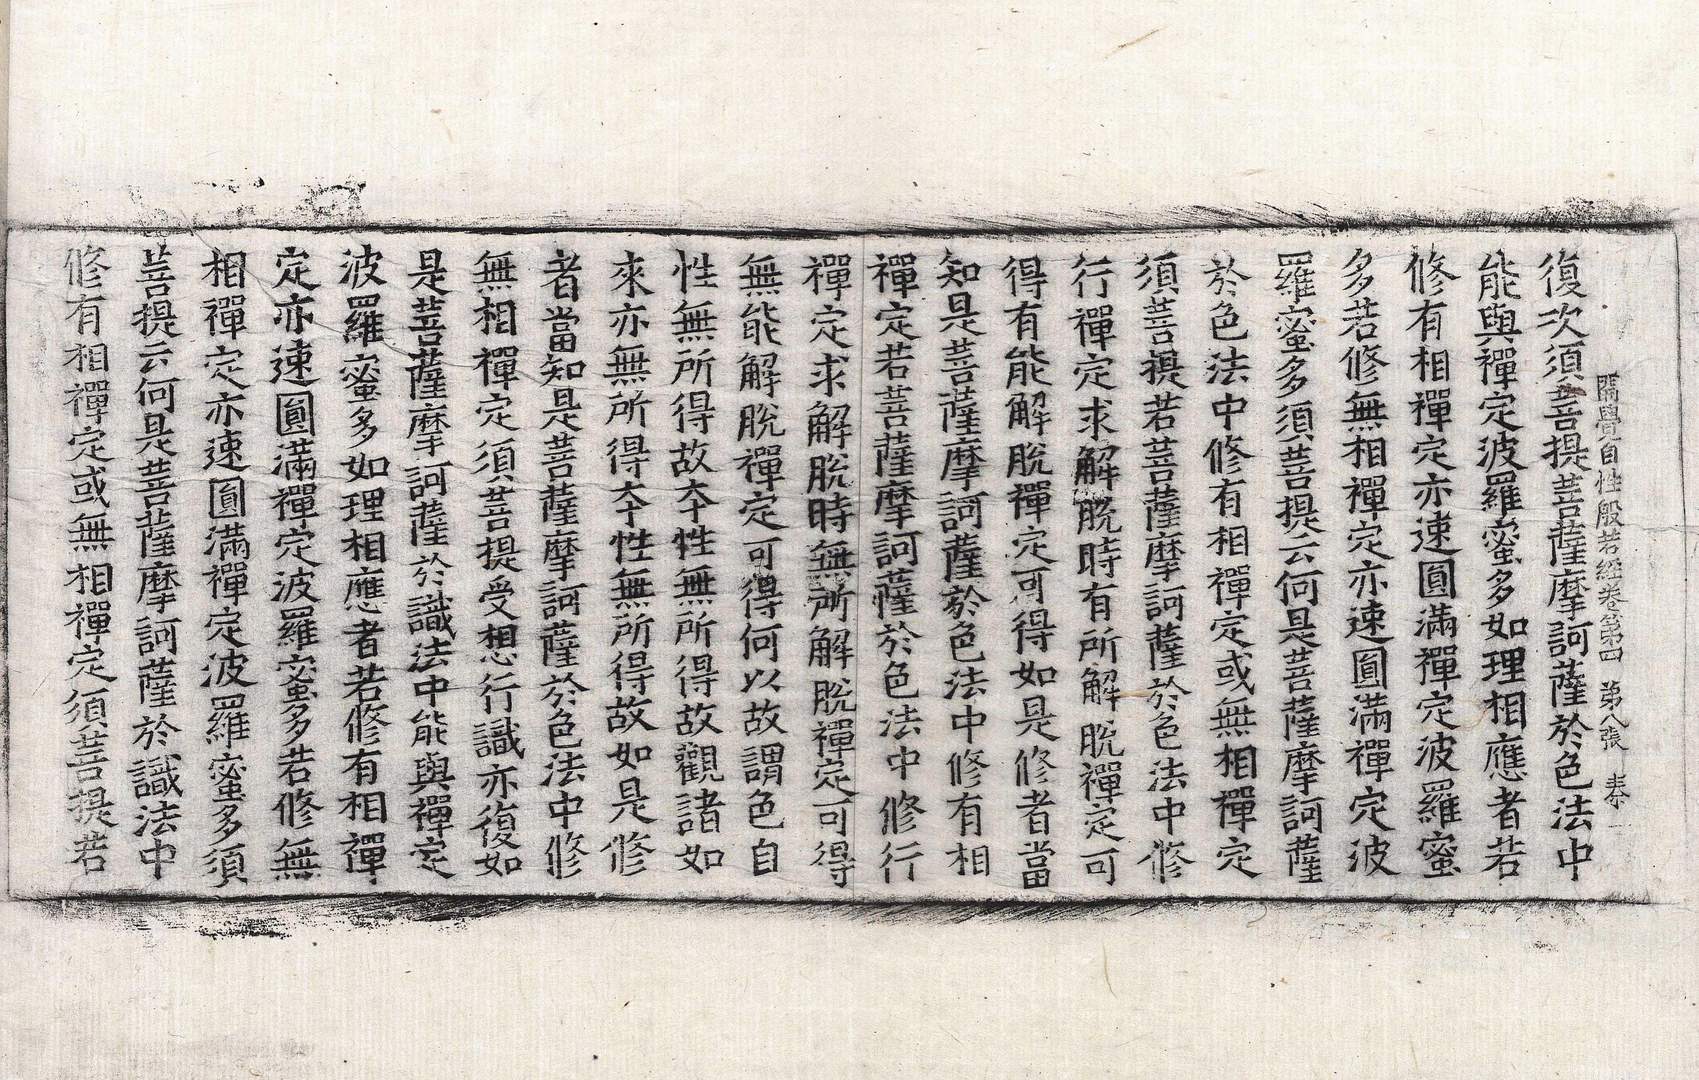 開覺自性般若經卷第四 第八張
復次須菩提菩薩摩訶薩於色法中
能與禪定波羅蜜多如理相應者若
修有相禪定亦速圓滿禪定波羅蜜
多若修無相禪定亦速圓滿禪定波
羅蜜多須菩提云何是菩薩摩訶薩
於色法中修有相禪定或無相禪定
須菩提若菩薩摩訶薩於色法中修
行禪定求解脫時有所解脫禪定可
得有能解脫禪定可得如是修者當
知是菩薩摩訶薩於色法中修有相
禪定若菩薩摩訶薩於色法中修行
禪定求解脫時無所解脫禪定可得
無能解脫禪定可得何以故謂色自
性無所得故夲性無所得故觀諸如
來亦無所得夲性無所得故如是修
者當知是菩薩摩訶薩於色法中修
無相禪定須菩提受想行識亦復如
是菩薩摩訶薩於識法中能與禪定
波羅蜜多如理相應者若修有相禪
定亦速圓滿禪定波羅蜜多若修無
相禪定亦速圓滿禪定波羅蜜多須
菩提云何是菩薩摩訶薩於識法中
修有相禪定或無相禪定須菩提若